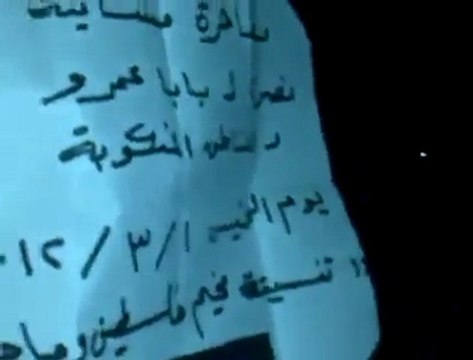 مظاهرة مسائية
نصرة لبابا عمرو
المنكوبة
يوم الخميس ١/٣/٢٠١٢
تنسيقية مخيم فلسطين